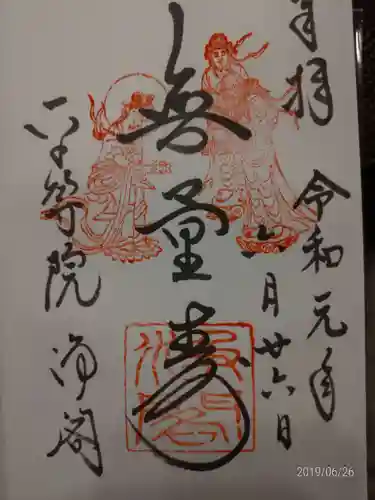 奉拝 令和元年
六月廿六日
無量寿
平等院 浄閣
2019/06/26